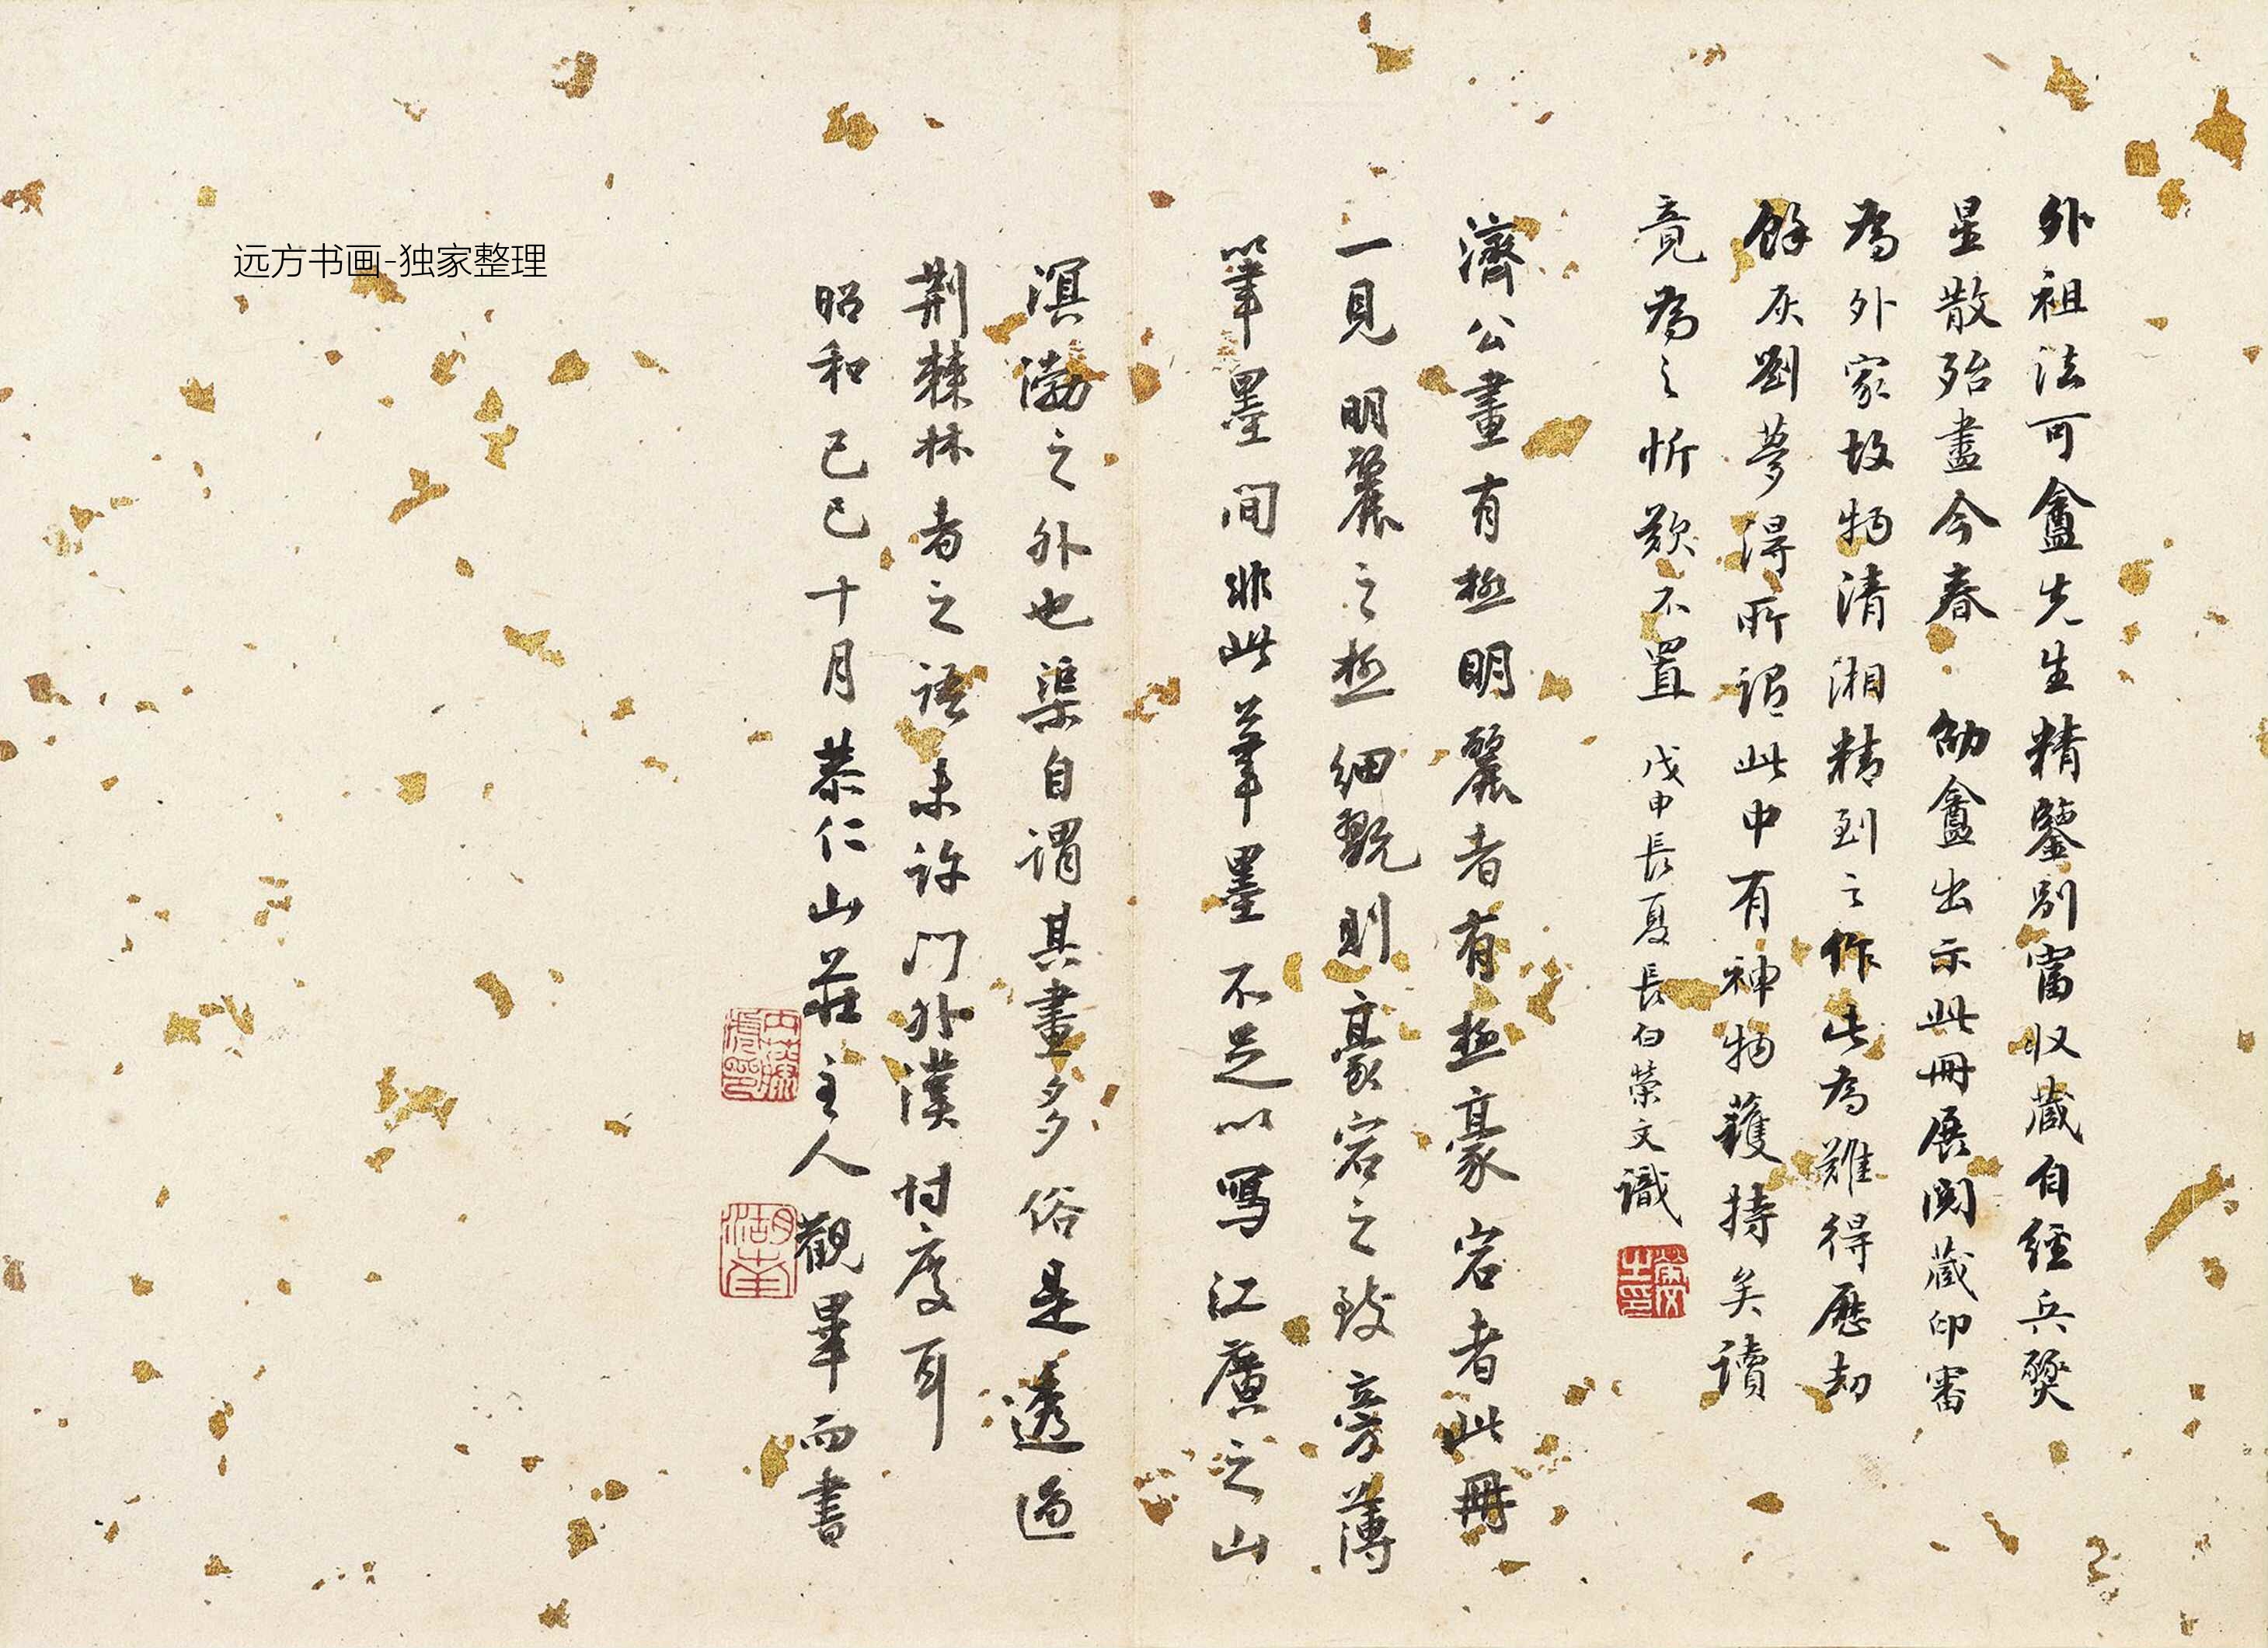 外祖法可盦先生精鑒別富収藏自經兵燹
星散殆盡今春 劬盦出示此冊展閱藏印審
為外家故物清湘精到之作此為難得歷劫
餘灰劉夢得所謂此中有神物護持矣讀
竟為之忻歎不置 戊申長夏長白榮文識
濟公畫有極明麗者有極豪宕者此冊
一見明麗之極細翫則豪宕之致旁薄
筆墨间非此筆墨不足以寫江廣之山
溟渤之外也渠自謂其畫多俗是透過
荆棘林者之語未許門外漢忖度耳
昭和己巳十月恭仁山莊主人觀畢而書
榮文之印
内藤虎印
湖南
远方书画-独家整理